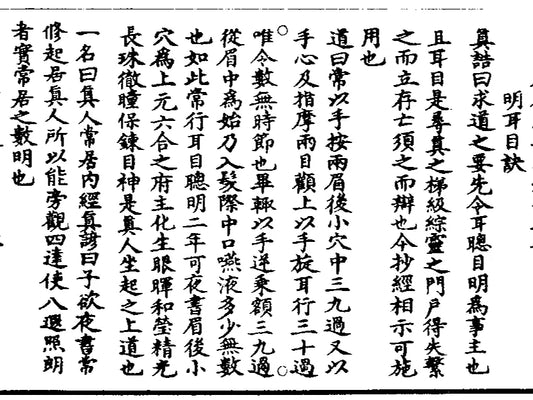 明耳目訣
真誥曰求道之要先令耳聰目明爲事主也
且耳目是尋真之梯級綜靈之門戶得失繫
之而立存亡須之而辯也今抄經相示可施
用也
道曰常以手按兩眉後小穴中三九過又以
手心及指摩兩目顴上以手旋耳行三十過
唯令數無時節也畢輒以手逆乘額三九過
從眉中爲始乃入髮際中口嚥液多少無數
也如此常行耳目聰明二年可夜書眉後小
穴爲上元六合之府主化生眼暉和瑩精光
長珠徹瞳保鍊目神是真人坐起之上道也
一名曰真人常居內經真諺曰子欲夜書常
修起居真人所以能旁觀四達使八遐照朗
者實常居之數明也